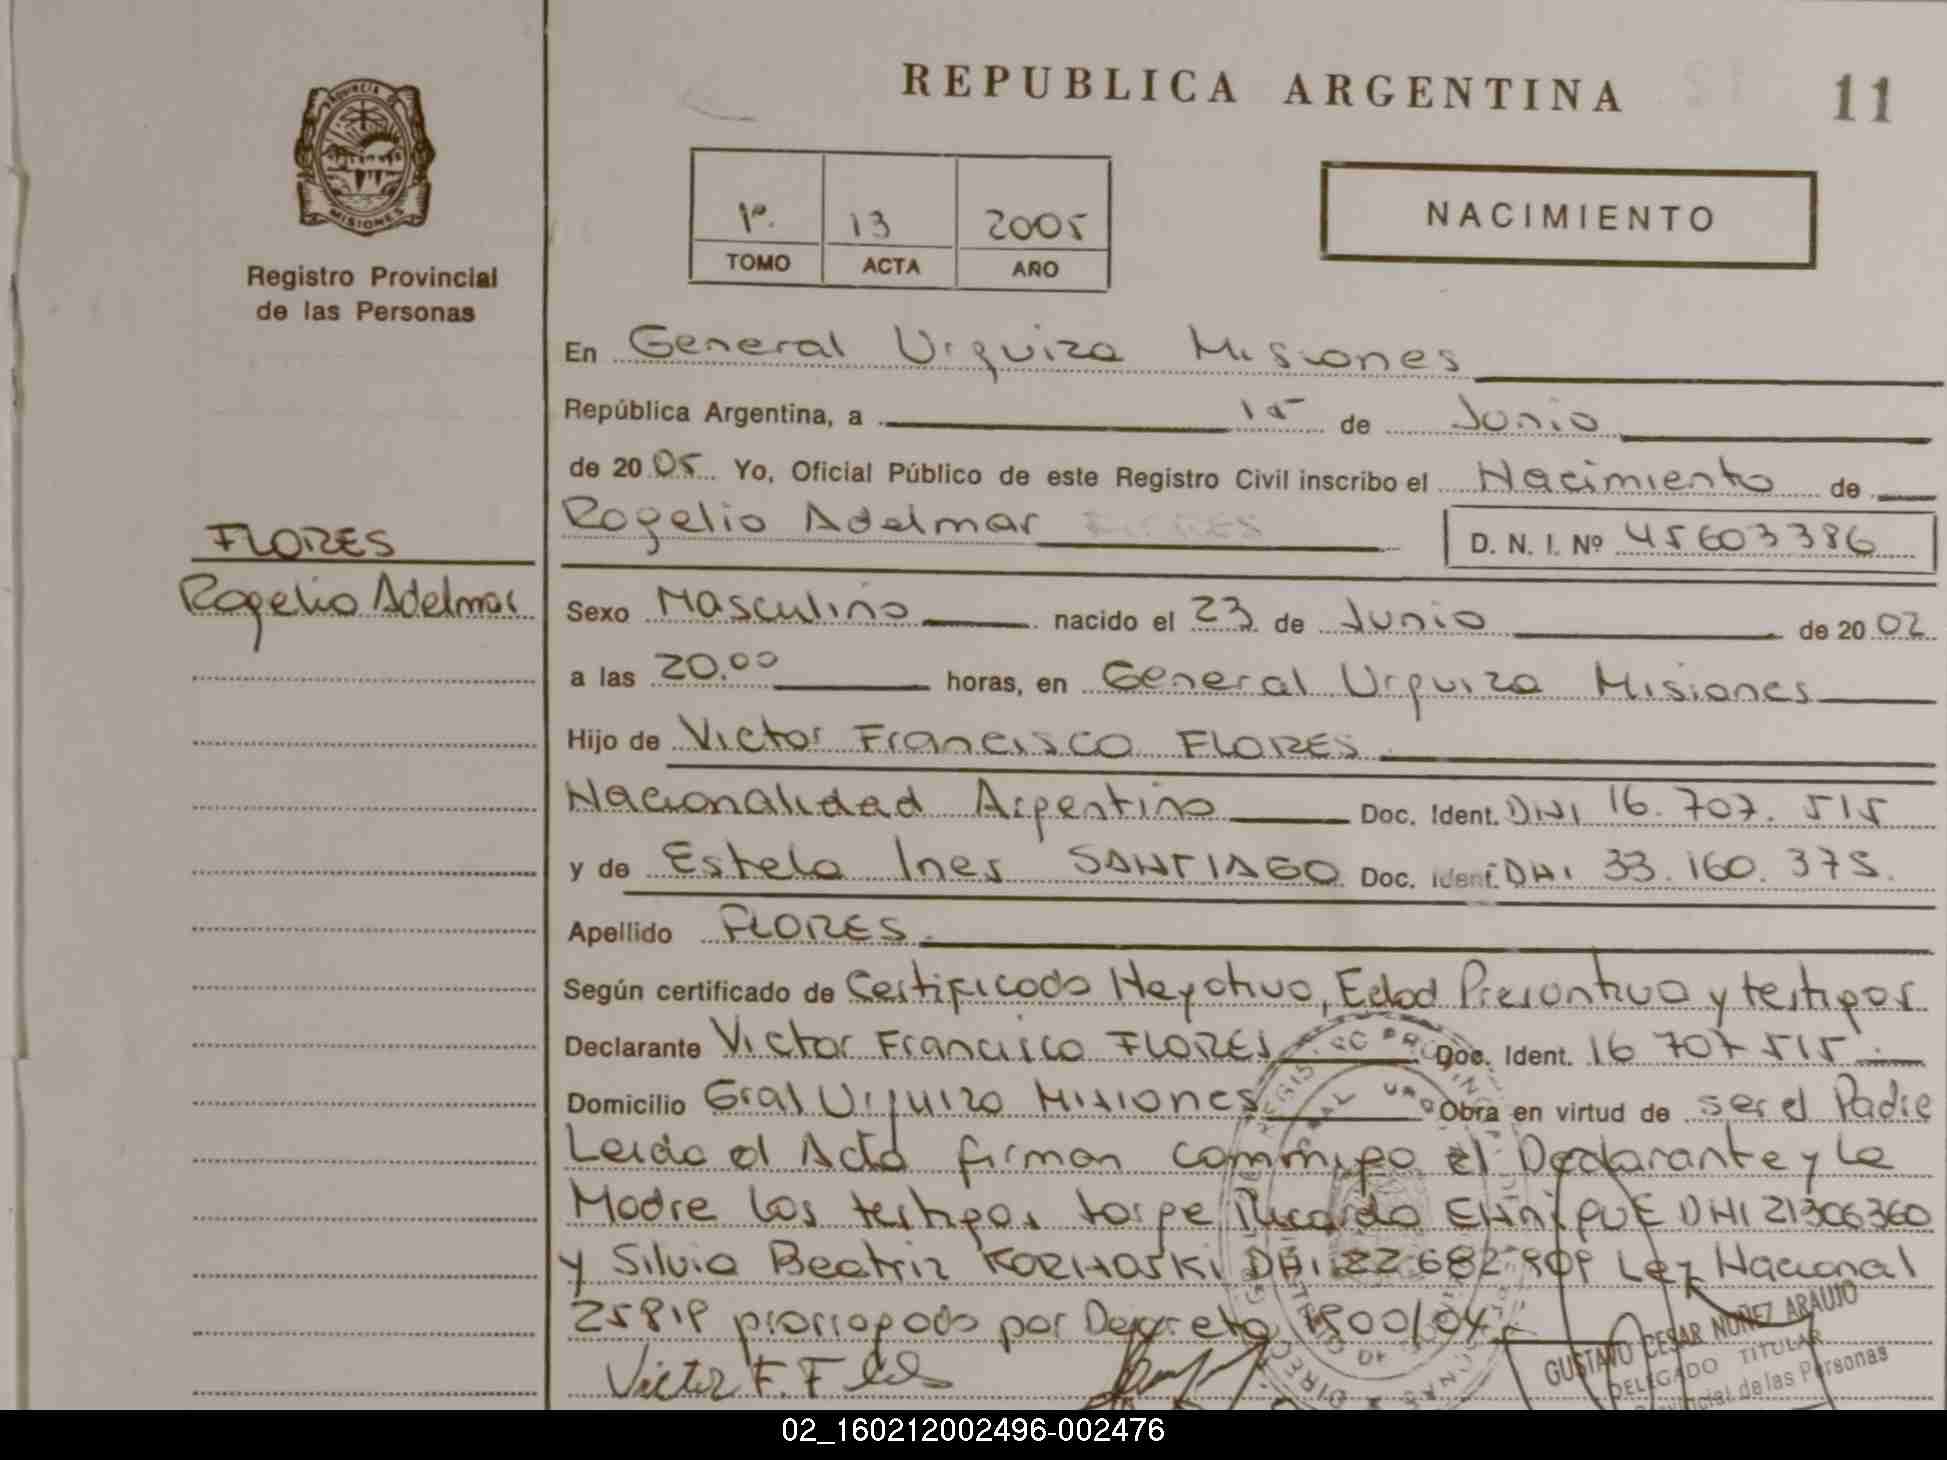 REPUBLICA ARGENTINA
11
PROVINCIA DE
MISIONES
Registro Provincial
de las Personas
1º. 13 2005
TOMO ACTA AÑO
NACIMIENTO
En General Urquiza Misiones
República Argentina, a 15 de Junio
de 2005 Yo, Oficial Público de este Registro Civil inscribo el Nacimiento de
Rogelio Adelmar
D. N. I. Nº 45603386
FLORES
Rogelio Adelmar
Sexo Masculino nacido el 23 de Junio de 2002
a las 20.00 horas, en General Urquiza Misiones
Hijo de Victor Francisco FLORES
Nacionalidad Argentino Doc. Ident. DNI 16.707.515
y de Estela Ines SANTIAGO Doc. Ident. DNI 33.160.375.
Apellido FLORES.
Según certificado de Certificado Negativo, Edad Presuntiva y testigos
Declarante Victor Francisco FLORES Doc. Ident. 16 707 515
Domicilio Gral Urquiza Misiones Obra en virtud de ser el Padre
Leida el Acta firman conmigo el Declarante y la
Madre los testigos Jorge Ricardo DNI 21306360
y Silvia Beatriz DNI 22 682 909 Ley Nacional
25819 prorrogado por Decreto 1900/04
Victor F. F
GUSTAVO CESAR NUÑEZ ARAUJO
DELEGADO TITULAR
Provincial de las Personas
02_160212002496-002476